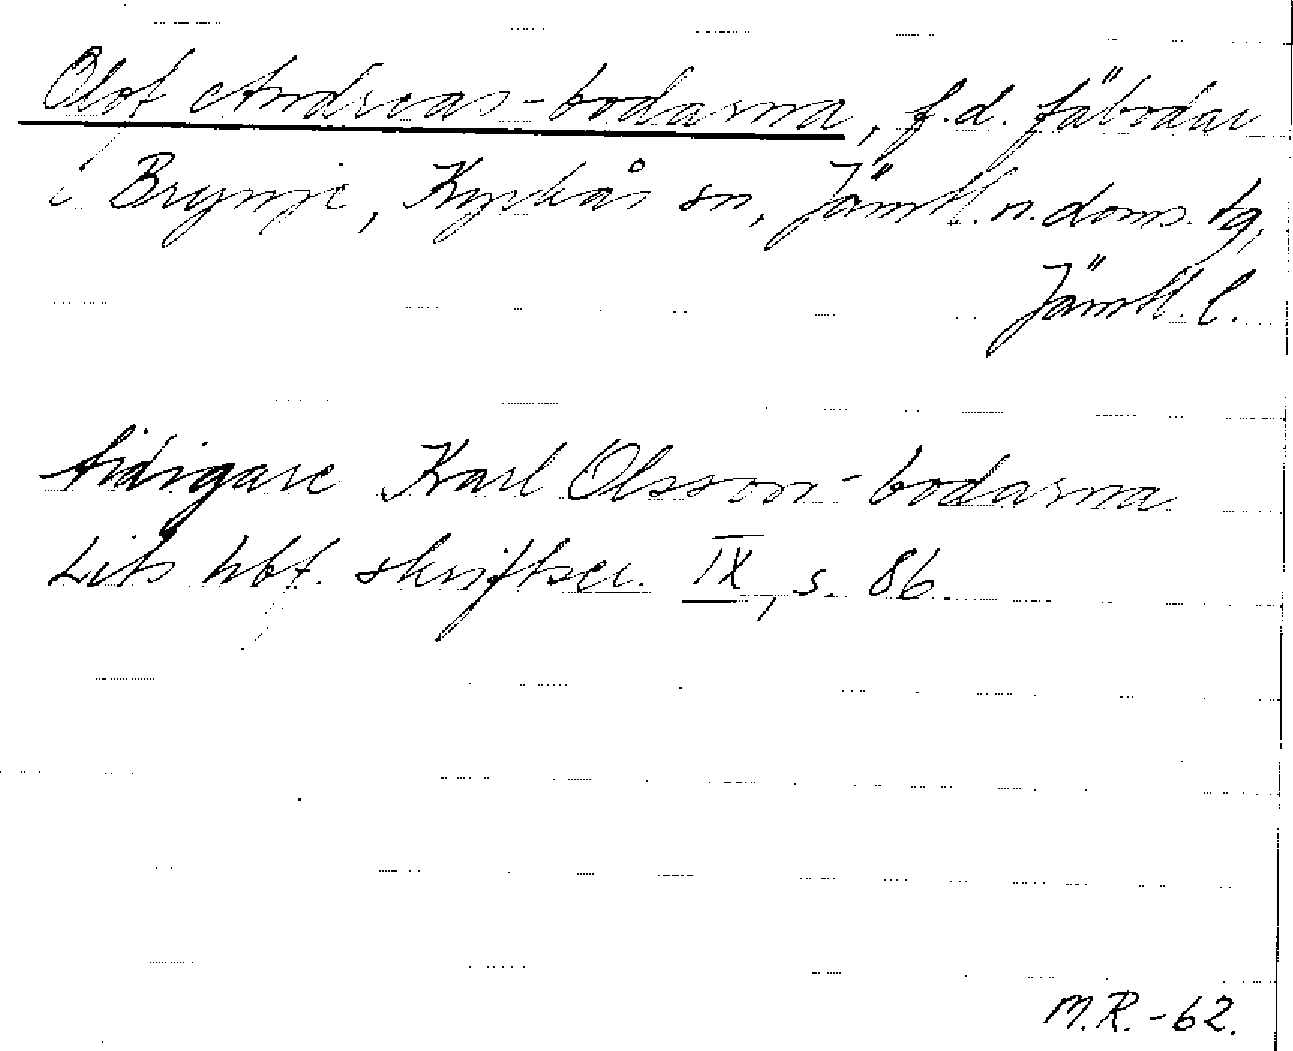 Olof Andreas-bodarna, f.d. fäbodar
i Brynje, Kyrkås sn, Jämtl. n. doms. tg,
Jämtl. l.
tidigare Karl Olsson-bodarna.
Lits hbf. skriftser. IX, s. 86.
M.R.-62.